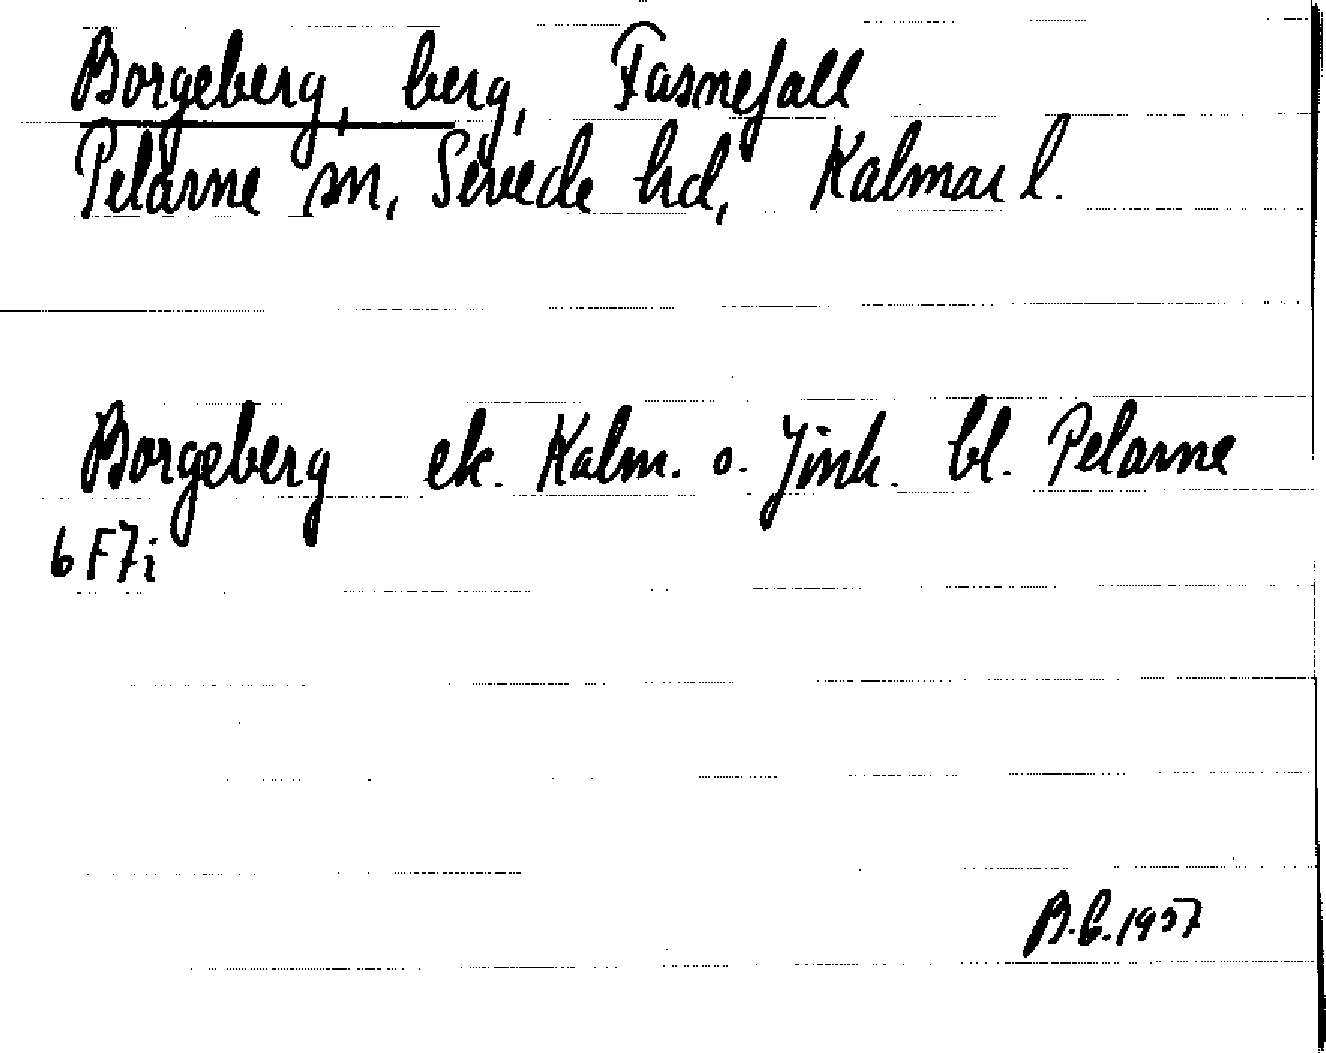 Borgeberg, berg, Fasnefall
Pelarne sn, Sevede hd, Kalmar l.
Borgeberg ek. Kalm. o. Jönk. bl. Pelarne
6 F7i
B.E. 1957